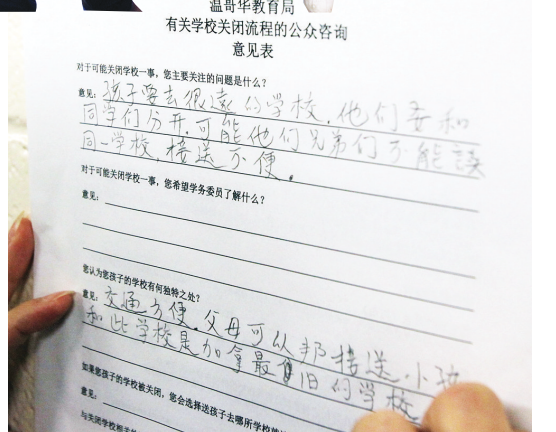 温哥华教育局
有关学校关闭流程的公众咨询
意见表
对于可能关闭学校一事，您主要关注的问题是什么？
意见：孩子要去很遠的学校，他们要和
同学们分开，可能他们兄弟们不能讀
同一学校，接送不便。
对于可能关闭学校一事，您希望学务委员了解什么？
意见：
您认为您孩子的学校有何独特之处？
意见：交通方便，父母可以帮接送小孩
和此学校是加拿最旧的学校
如果您孩子的学校被关闭，您会选择送孩子去哪所学校
意见：
与关闭学校相关的